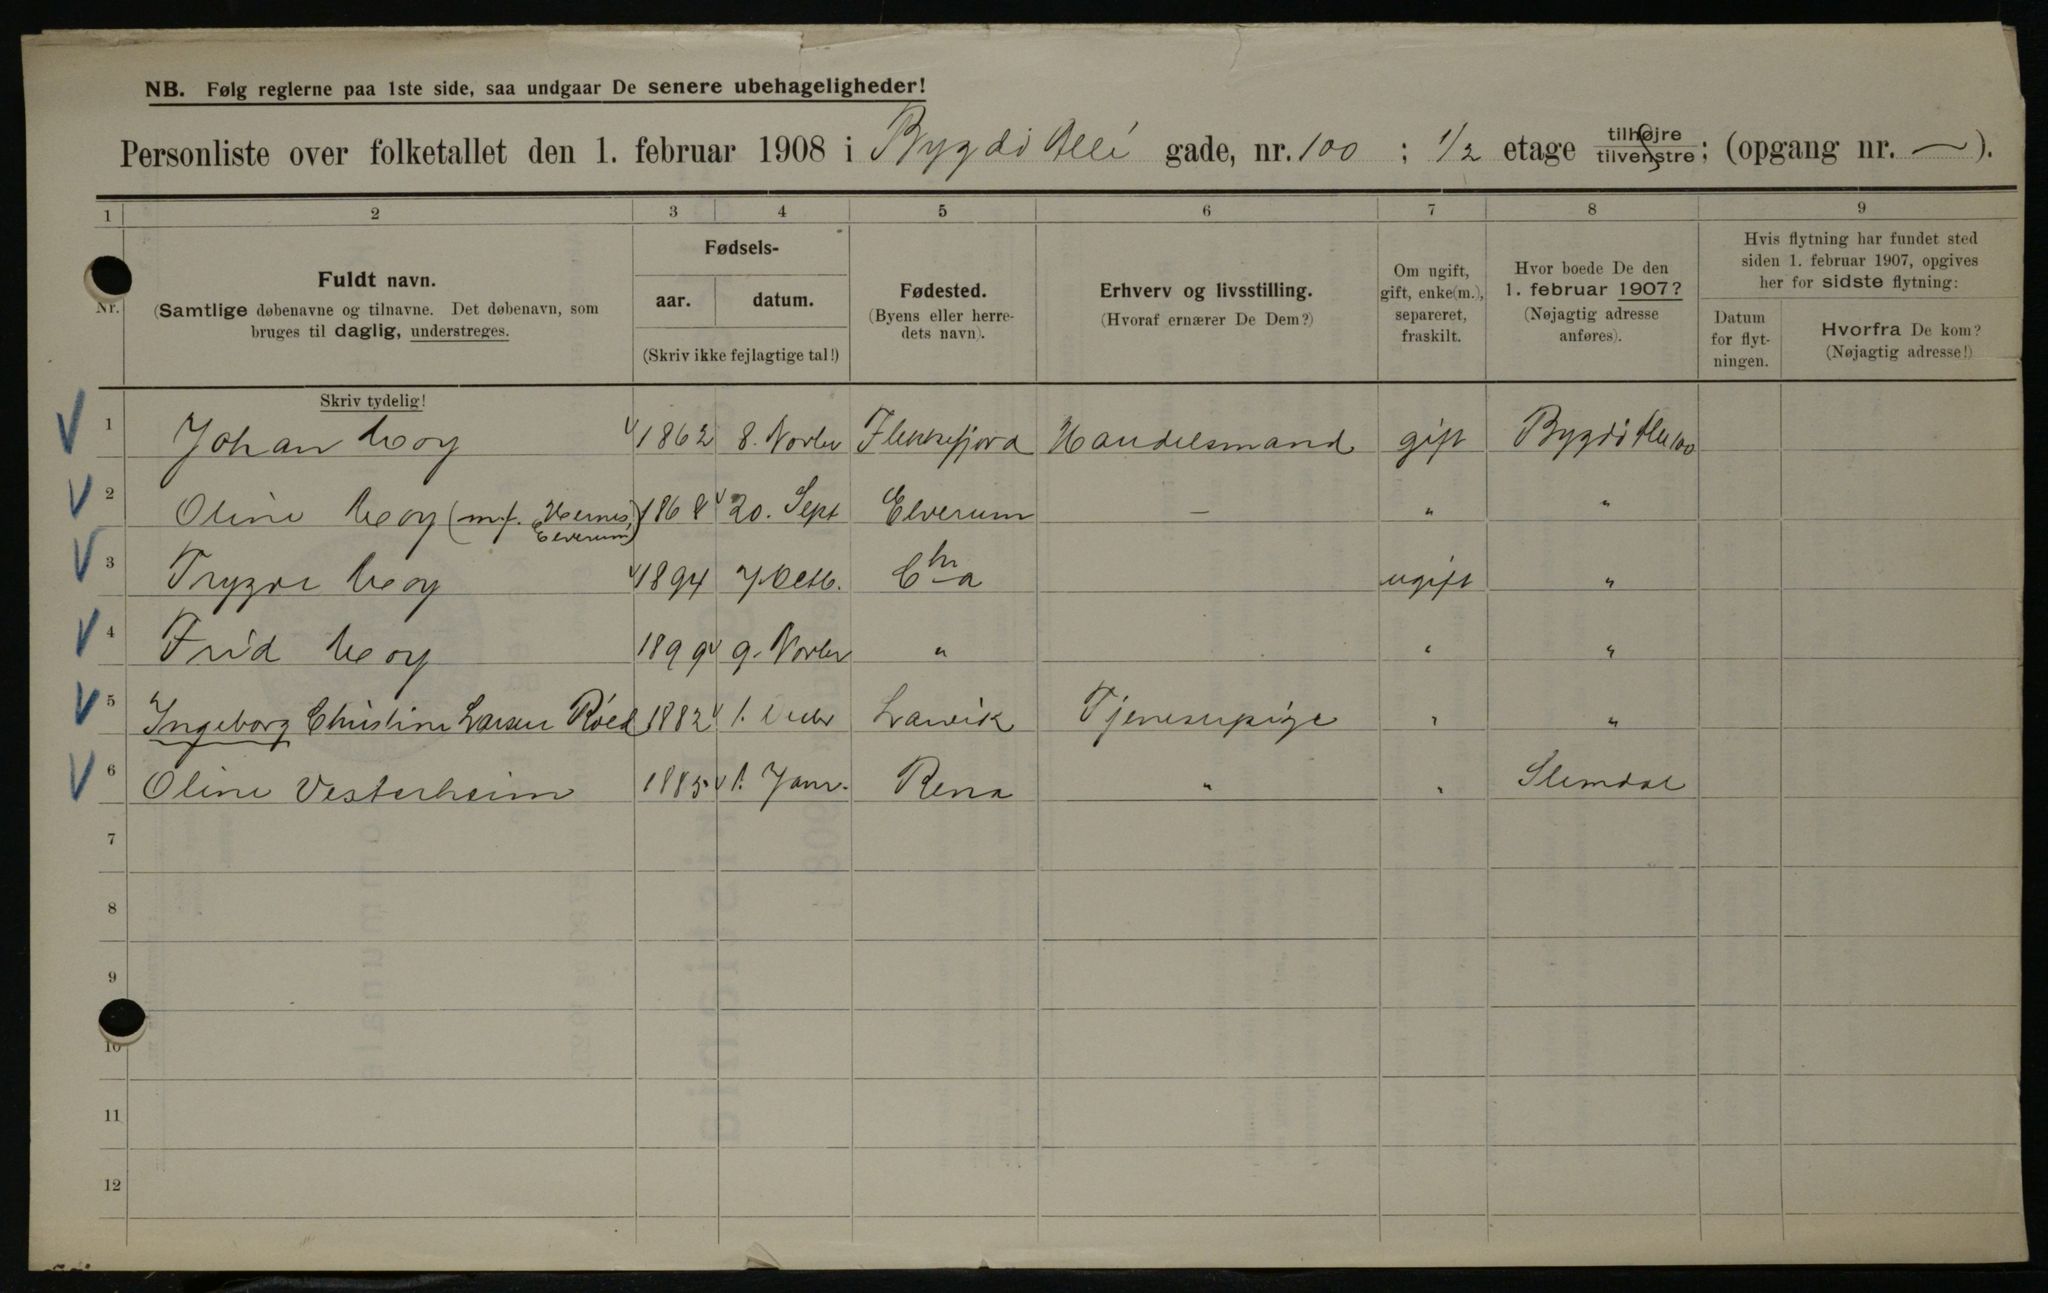 NB. Følg reglerne paa 1ste side, saa undgaar De senere ubehageligheder!
Personliste over folketallet den 1. februar 1908 i Bygdö Allé gade, nr. 100 ; 1/2 etage tilhøjre tilvenstre; (opgang nr. — ).
1 2 3 4 5 6 7 8 9
Nr.
Fuldt navn.
(Samtlige døbenavne og tilnavne. Det døbenavn, som
bruges til daglig, understreges.
Skriv tydelig!
Fødsels-
aar. datum.
(Skriv ikke fejlagtige tal!)
Fødested.
(Byens eller herre-
dets navn).
Erhverv og livsstilling.
(Hvoraf ernærer De Dem?)
Om ugift,
gift, enke(m.),
separeret,
fraskilt.
Hvor boede De den
1. februar 1907?
(Nøjagtig adresse
anføres).
Hvis flytning har fundet sted
siden 1. februar 1907, opgives
her for sidste flytning:
Datum
for flyt-
ningen.
Hvorfra De kom?
(Nøjagtig adresse!)
1 Johan 1862 8. Novbr Flekkefjord Handelsmand gift Bygdö Alle 100
2 Oline (m.f. Hernes, Elverum) 1868 20. Sept Elverum — " "
3 Trygve 1894 7. Octb. Chra ugift "
4 Frid 1899 9. Novbr " " "
5 Ingeborg Christine Larsen Röed 1882 1. Larvik Tjenestepige " "
6 Oline Vesterheim 1885 1. Janr. Rena " " Slemdal
7
8
9
10
11
12